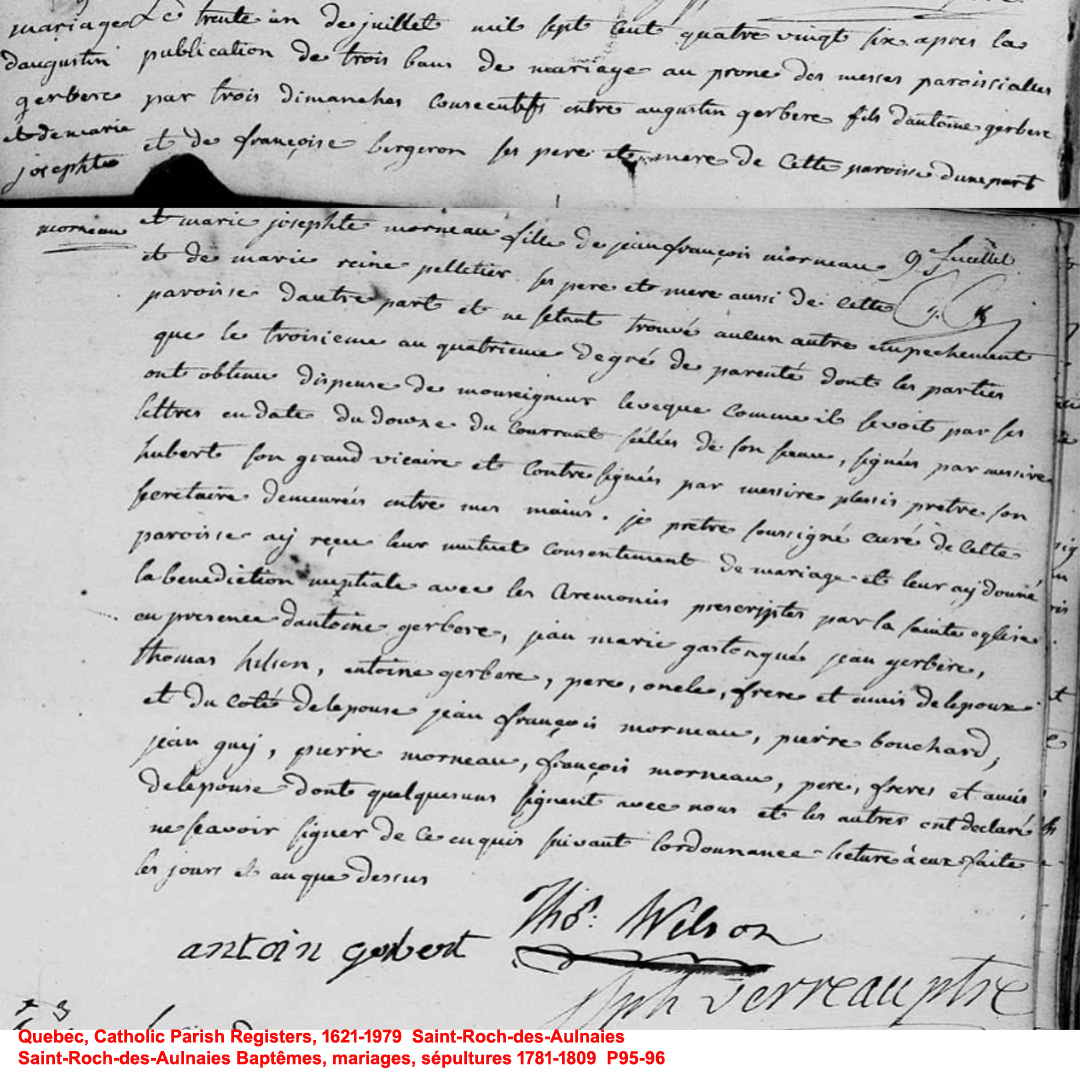 mariage Le trente un de juillet mil sept cent quatre vingt six apres la
daugustin publication de trois bans de mariage au prone des messes paroissialles
gerbere par trois dimanches consecutifs entre augustin gerbere fils dantoine gerbere
et de marie et de françoise bergeron ses pere et mere de Cette paroisse dune part
josephte
morneau et marie josephte morneau fille de jean françois morneau
et de marie reine pelletier ses pere et mere aussi de Cette
paroisse dautre part et ne setant trouvé aucun autre empechement
que le troisieme au quatrieme degré de parenté dont les parties
ont obtenu dispense de monseigneur leveque comme il sevoit par ses
lettres en date du douze du Courrant séelés de son sceau, signées par messire
hubert son grand vicaire et Contresignées par messire plessis pretre son
secretaire demeurées entre mes mains. je pretre soussigné curé de Cette
paroisse aÿ reçu leur mutuel Consentement de mariage et leur aÿ donné
la benediction nuptiale avec les Ceremonies prescriptes par la sainte eglise
en presence dantoine gerbere, jean marie gastongué jean gerbere,
thomas , antoine gerbere, pere, oncle, frere et amis de lepoux
et du Coté de lepouse jean françois morneau, pierre bouchard,
jean guÿ, pierre morneau, françois morneau, pere, freres et amis
de lepouse dont quelquesuns signent avec nous et les autres ont declaré
ne scavoir signer de Ce enquis suivant lordonnance lecture à eux faite
les jours et an que dessus
antoin gerbert Thos. Wilson
Jph verreau ptre
Quebec, Catholic Parish Registers, 1621-1979 Saint-Roch-des-Aulnaies
Saint-Roch-des-Aulnaies Baptêmes, mariages, sépultures 1781-1809 P95-96